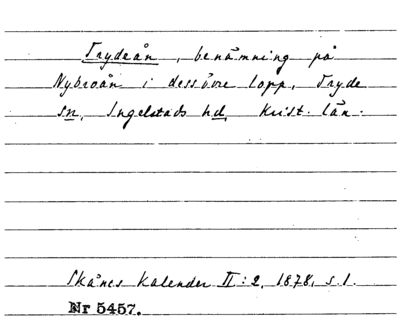 Trydeån, benämning på
Nybroån i dess övre lopp, Tryde
sn, Ingelstads hd, Krist. län.
Skånes Kalender II:2, 1878, s.1.
Nr 5457.